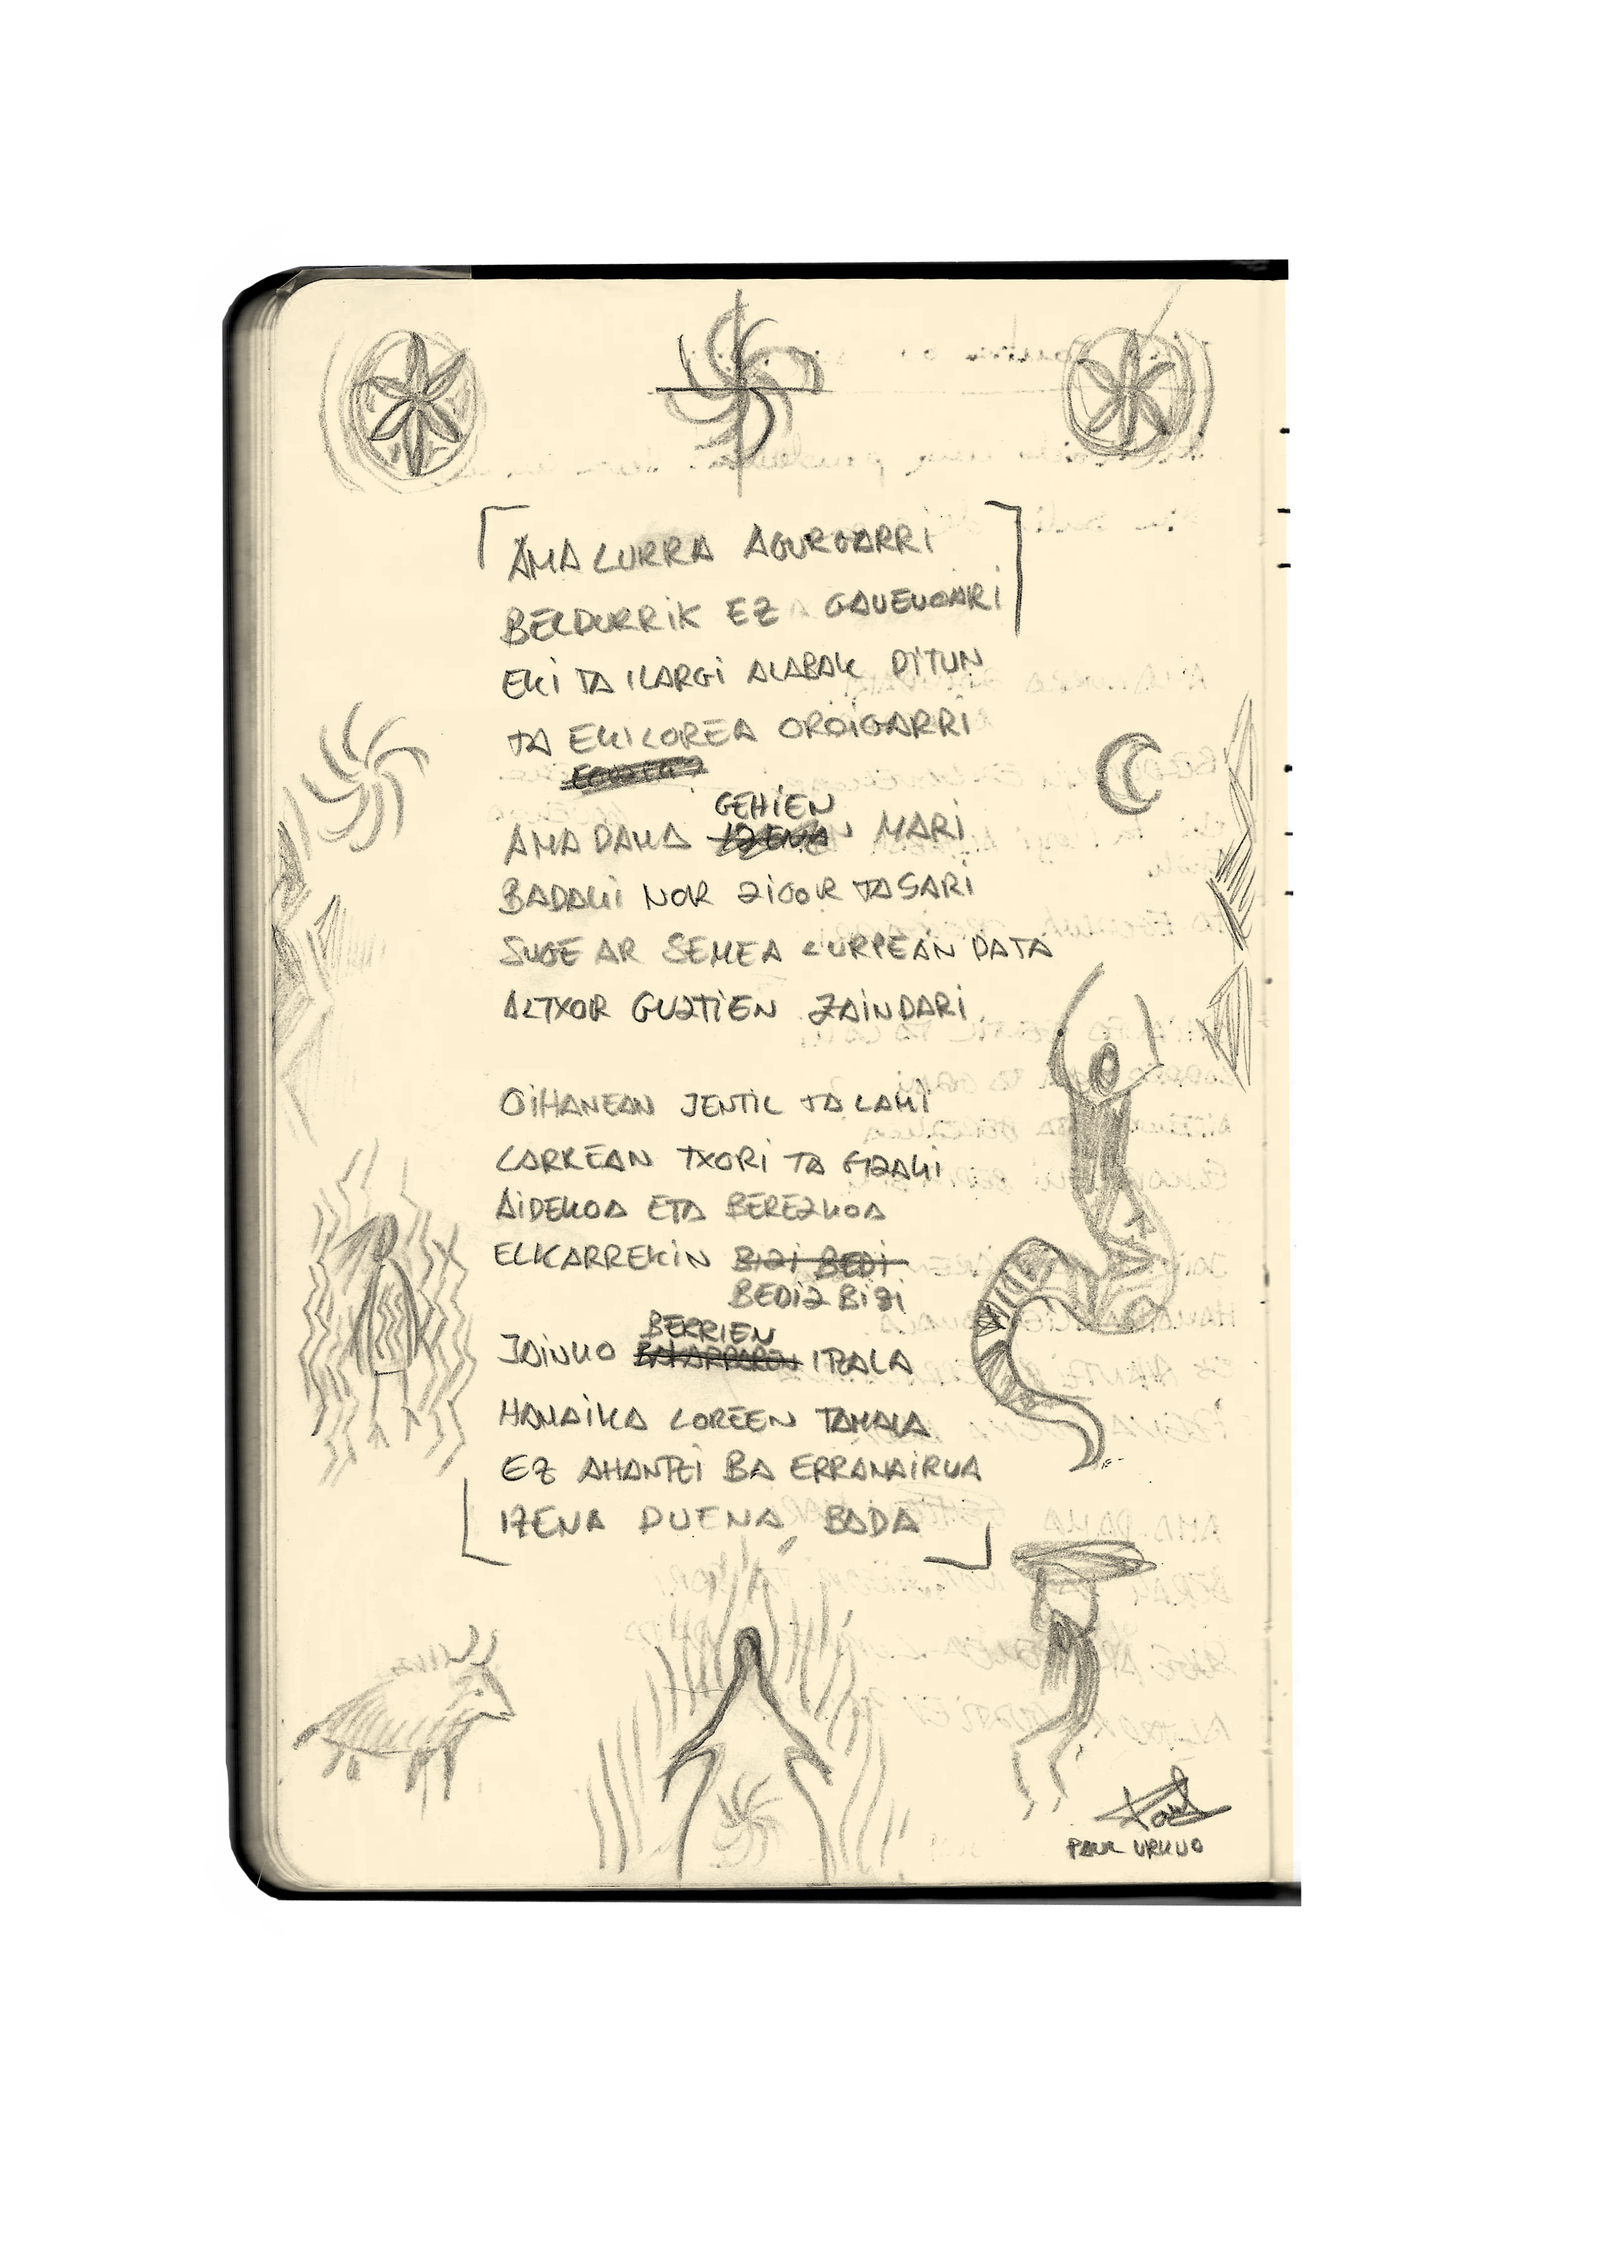 AMA LURRA AGURGARRI
BELDURRIK EZ GAUEKOARI
EKI TA ILARGI ALABAK DITUN
TA EKILOREA OROIGARRI
GEHIEN
AMA DAMA IZENA MARI
BADAKI NOR ZIGOR TA SARI
SUGE AR SEMEA LURPEAN DATA
ALTXOR GUZTIEN ZAINDARI
OIHANEAN JENTIL TA LAMI
LARREAN TXORI TA GIZAKI
AIDEKOA ETA BEREZKOA
ELKARREKIN BIZI BEDI
BEDIZ BIZI
BERRIEN
JAINKO BAKARRAREN ITZALA
HAMAIKA LOREEN TAMALA
EZ AHANTZI BA ERRANAIRUA
IZENA DUENA, BADA
PAUL URKIJO